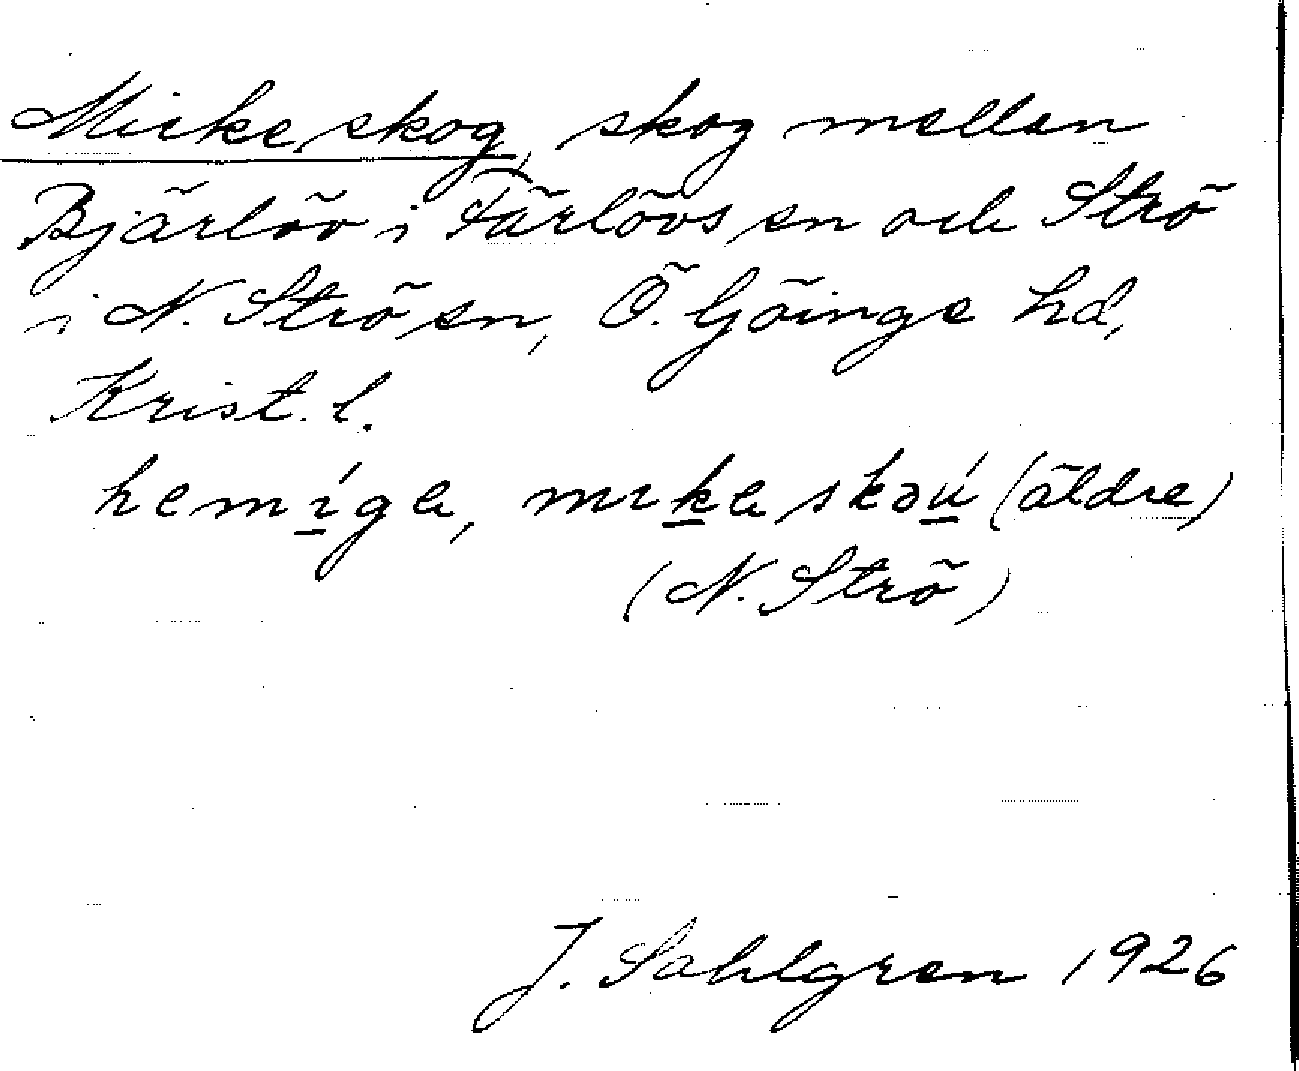 Mickeskog, skog mellan
Bjärlöv i Färlövs sn och Strö
i N. Strö sn, Ö. Göinge hd,
Krist. l.
hemíga, mıkaskəú (äldre)
(N. Strö)
J. Sahlgren 1926